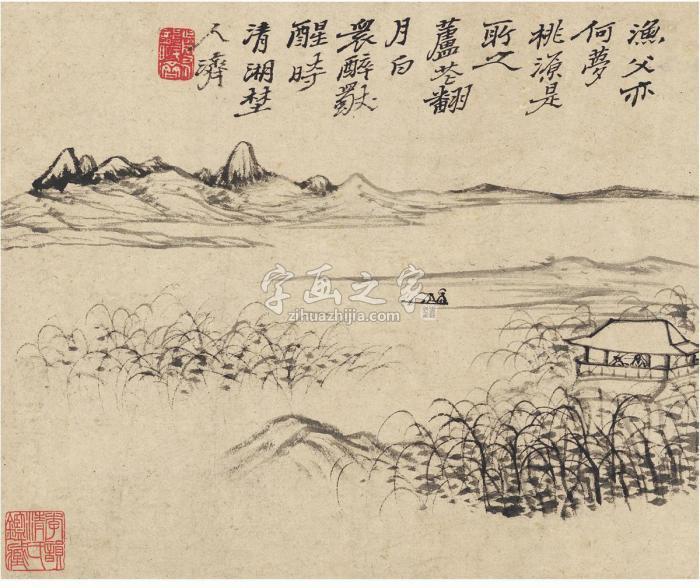 漁父亦
何夢
桃源是
所之
蘆花翻
月白
衆醉獨
醒時
清湘埜
人濟
字画之家
zihuazhijia.com